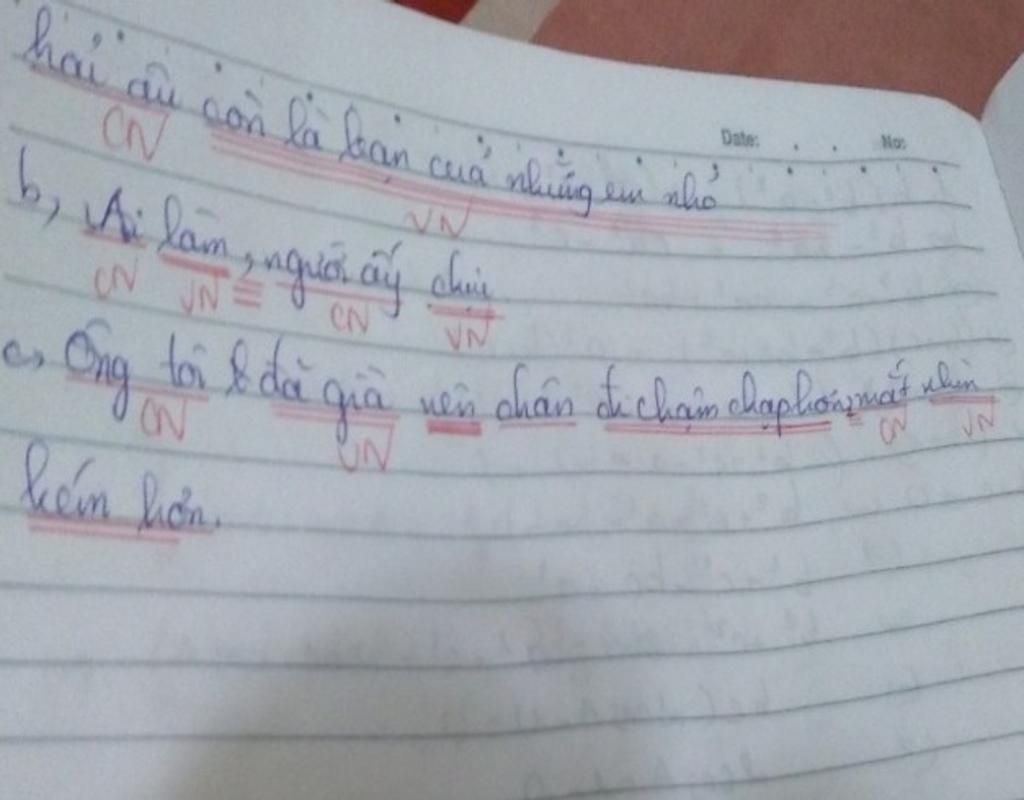 hải âu còn là bạn của những em nhỏ
CN VN
Date: No:
b, Ai làm, người ấy chịu
CN VN CN VN
c, Ông tôi đã già nên chân đi chậm chạp hơn, mắt nhìn
CN VN CN VN
kém hơn.